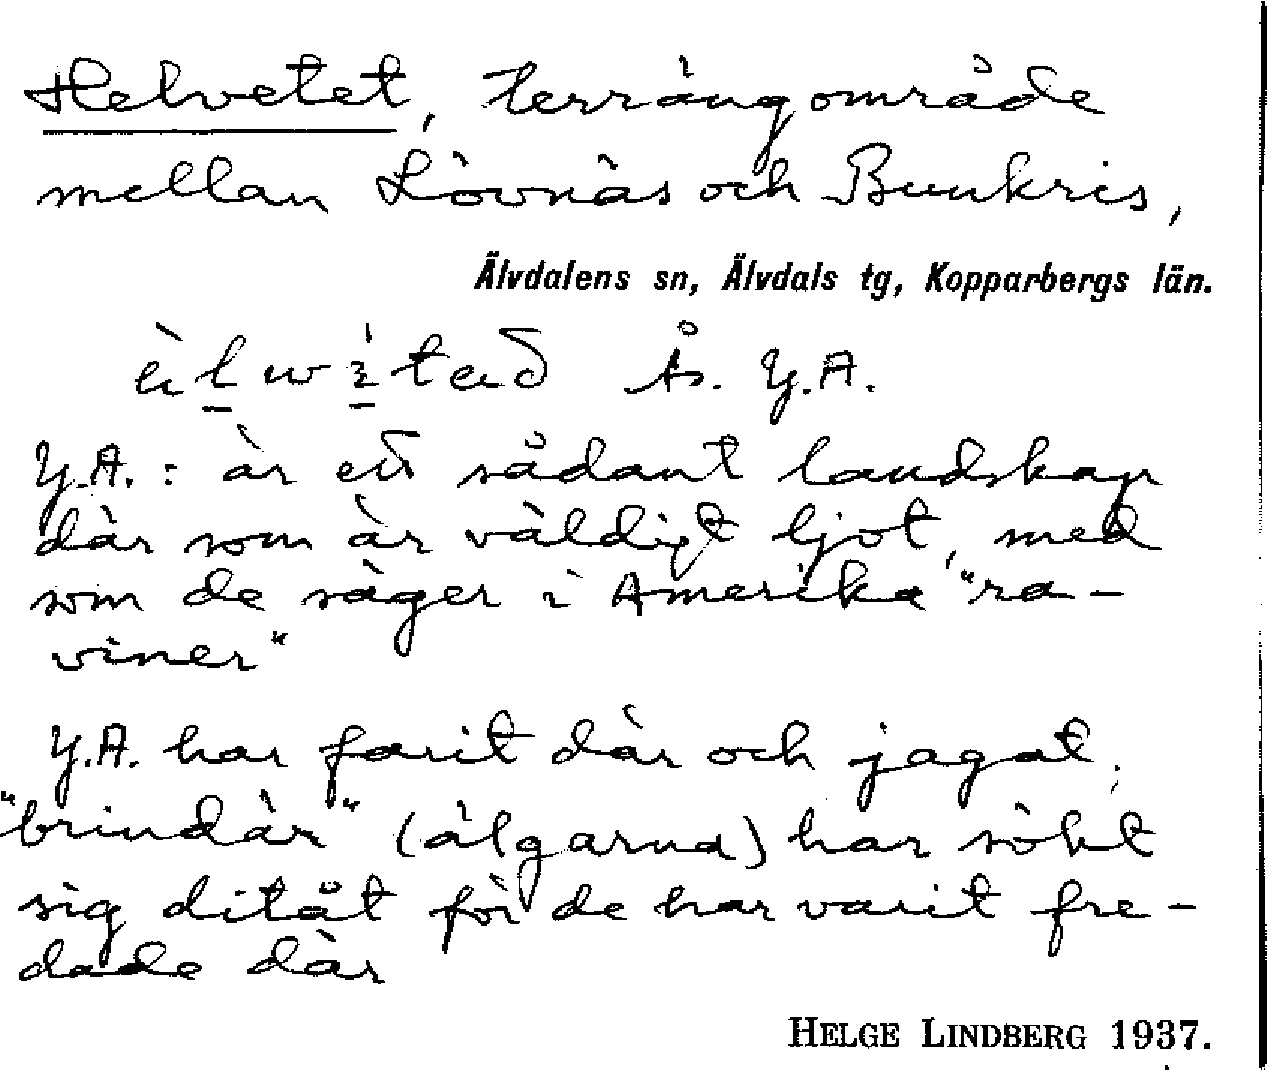 Helvetet, terrängområde
mellan Lövnäs och Bunkris,
Älvdalens sn, Älvdals tg, Kopparbergs län.
Ås. Y.A.
Y.A.: är ett sådant landskap
där som är väldigt ljot, med
som de säger i Amerika "ra-
viner"
Y.A. har farit där och jagat;
"brindär" (älgarna) har sökt
sig ditåt för de har varit fre-
dade där
HELGE LINDBERG 1937.